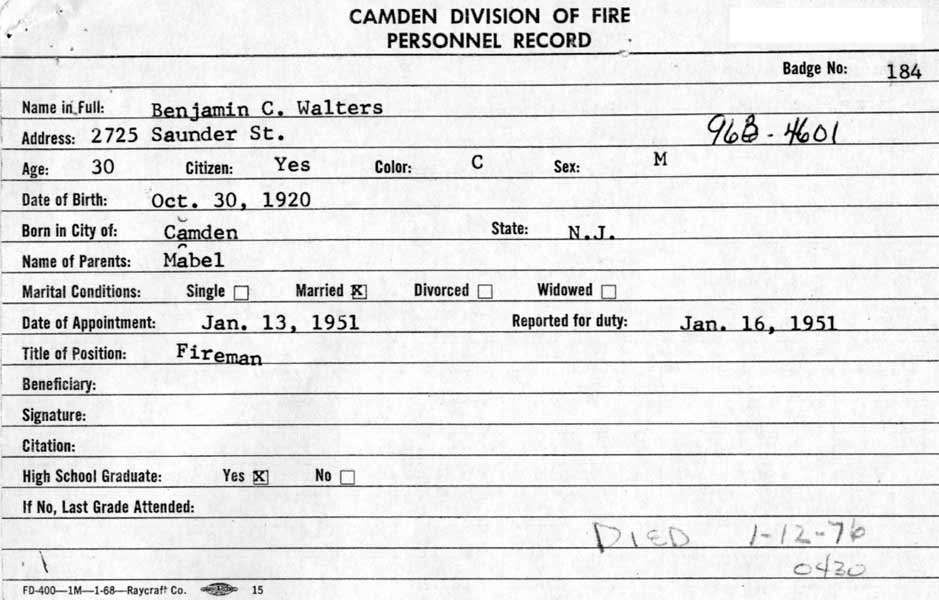 CAMDEN DIVISION OF FIRE
PERSONNEL RECORD
Badge No: 184
Name in Full: Benjamin C. Walters
Address: 2725 Saunder St. 968-4601
Age: 30 Citizen: Yes Color: C Sex: M
Date of Birth: Oct. 30, 1920
Born in City of: Camden State: N.J.
Name of Parents: Mabel
Marital Conditions: Single Married X Divorced Widowed
Date of Appointment: Jan. 13, 1951 Reported for duty: Jan. 16, 1951
Title of Position: Fireman
Beneficiary:
Signature:
Citation:
High School Graduate: Yes X No
If No, Last Grade Attended:
DIED 1-12-76
0430
FD-400—1M—1-68—Raycraft Co. 15